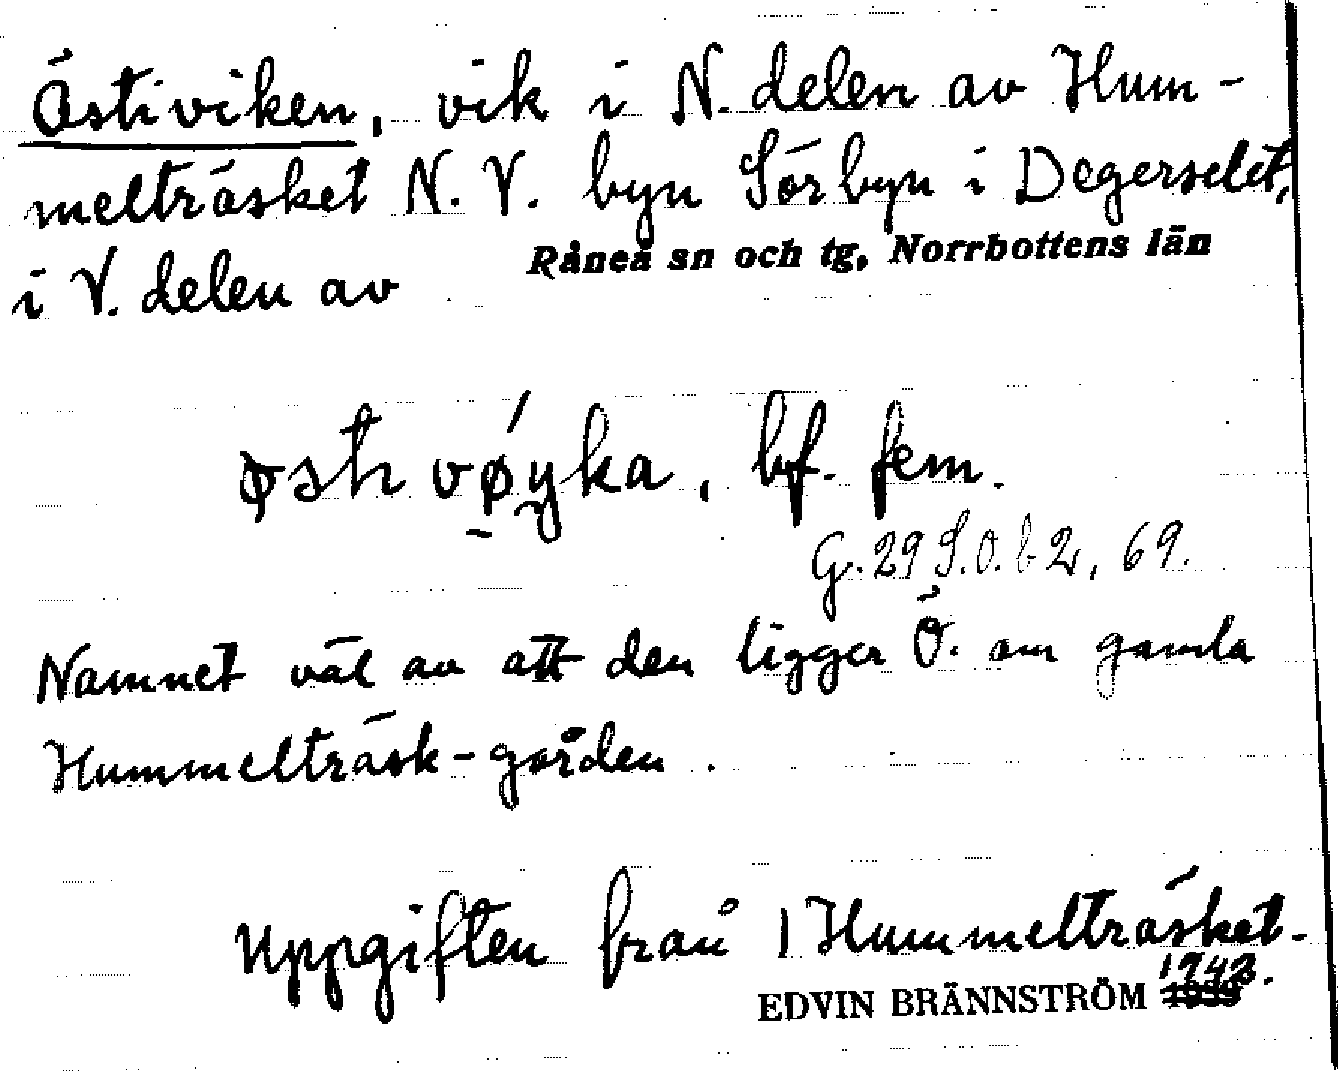 Östiviken, vik i N. delen av Hum-
melträsket N. V. byn Sörbyn i Degerselet,
i V. delen av Råneå sn och tg, Norrbottens län
bf. fem.
G. 29 S.O. b 2, 69.
Namnet väl av att den ligger Ö. om gamla
Hummelträsk-gården.
Uppgiften från 1 Hummelträsket.
EDVIN BRÄNNSTRÖM 1943.